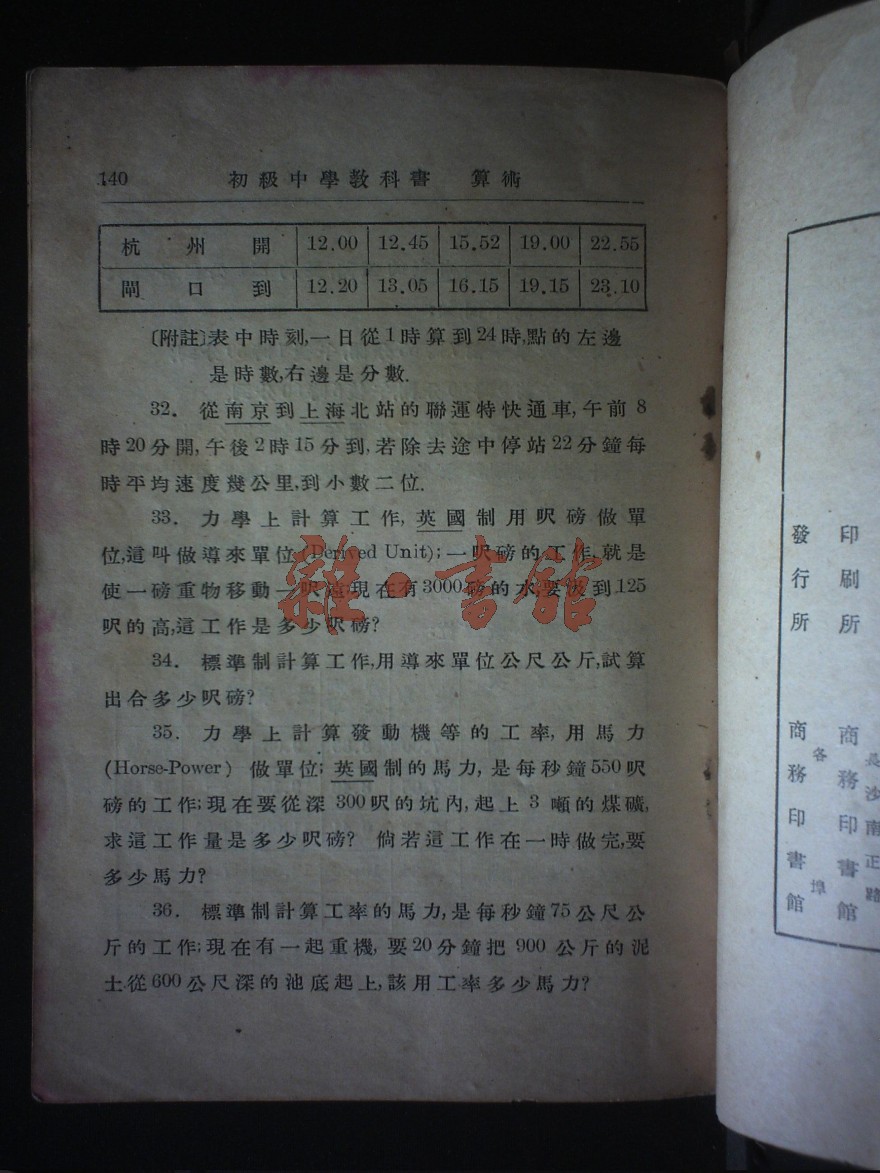 140 初級中學教科書 算術
杭州開 12.00 12.45 15.52 19.00 22.55
閘口到 12.20 13.05 16.15 19.15 23.10
〔附註〕表中時刻,一日從1時算到24時,點的左邊
是時數,右邊是分數.
32. 從南京到上海北站的聯運特快通車,午前8
時20分開,午後2時15分到,若除去途中停站22分鐘每
時平均速度幾公里,到小數二位.
33. 力學上計算工作,英國制用呎磅做單
位,這叫做導來單位(Derived Unit);一呎磅的工作,就是
使一磅重物移動一呎遠;現在有3000磅的水,要汲到125
呎的高,這工作是多少呎磅?
34. 標準制計算工作,用導來單位公尺公斤,試算
出合多少呎磅?
35. 力學上計算發動機等的工率,用馬力
(Horse-Power) 做單位;英國制的馬力,是每秒鐘550呎
磅的工作;現在要從深300呎的坑內,起上3噸的煤礦,
求這工作量是多少呎磅? 倘若這工作在一時做完,要
多少馬力?
36. 標準制計算工率的馬力,是每秒鐘75公尺公
斤的工作;現在有一起重機,要20分鐘把900公斤的泥
土從600公尺深的池底起上,該用工率多少馬力?
雜·書館
印刷所 商務印書館
長沙南正路
發行所 商務印書館
各埠